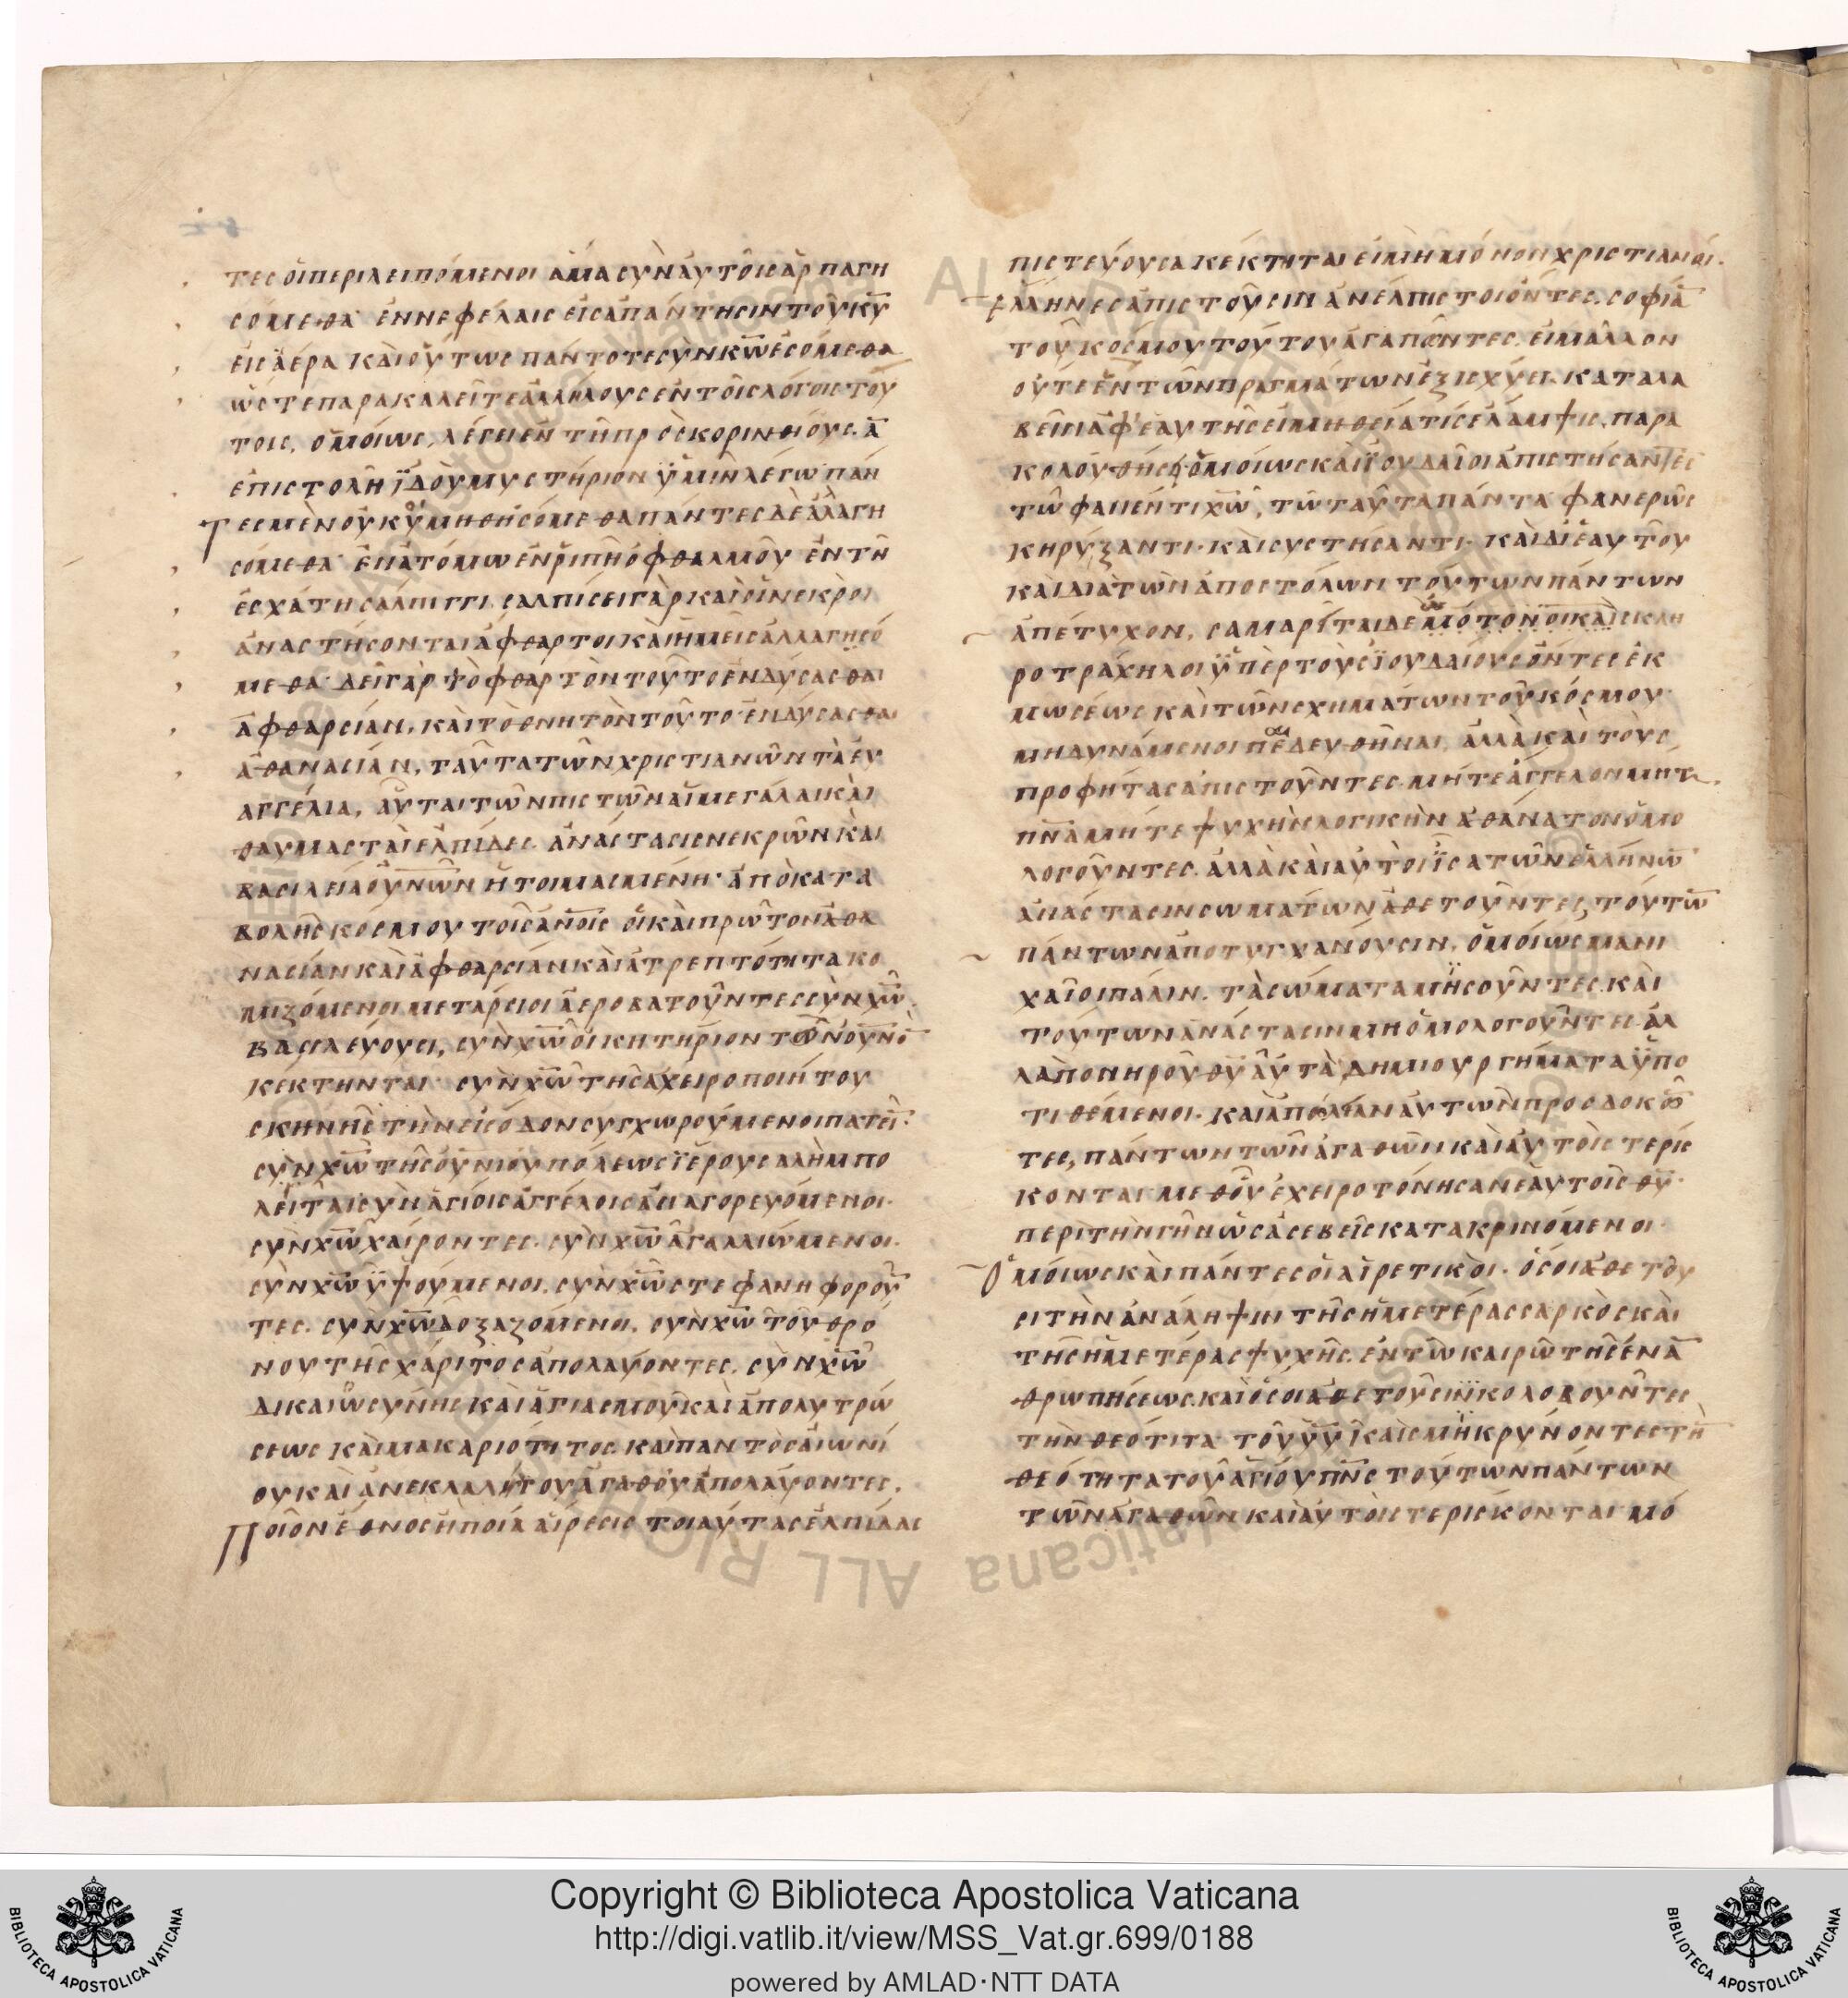 τες οἱ περιλειπόμενοι ἅμα σὺν αὐτοῖς ἁρπαγη
σόμεθα ἐν νεφέλαις εἰς ἀπάντησιν τοῦ κ̅υ̅
εἰς ἀέρα καὶ οὕτως πάντοτε σὺν κ̅ω̅ ἐσόμεθα
ὥστε παρακαλεῖτε ἀλλήλους ἐν τοῖς λόγοις τού
τοις, ὁμοίως λέγει ἐν τῇ πρὸς κορινθίους α̅
ἐπιστολῇ ἰ̈δοὺ μυστήριον ὑ̈μῖν λέγω πάν
τες μὲν οὐ κοιμηθησόμεθα πάντες δὲ ἀλλαγη
σόμεθα ἐν ἀτόμω ἐν ῥιπῇ ὀφθαλμοῦ ἐν τῇ
ἐσχάτη σάλπιγγι, σαλπίσει γὰρ καὶ οἱ νεκροὶ
ἀναστήσονται ἄφθαρτοι καὶ ἡμεῖς ἀλλαγησό
μεθα δεῖ γὰρ τὸ φθαρτὸν τοῦτο ἐνδύσασθαι
ἀφθαρσίαν, καὶ τὸ θνητὸν τοῦτο ἐνδύσασθαι
ἀθανασίαν, ταῦτα τῶν χριστιανῶν τὰ εὐ
αγγέλια, αὗται τῶν πιστῶν αἱ μεγάλαι καὶ
θαυμασταὶ ἐλπίδες ἀνάστασις νεκρῶν καὶ
βασιλεία ο̅υ̅ν̅ω̅ν̅ ἡτοιμασμένη ἀπὸ κατα
βολῆς κόσμου τοῖς α̅ν̅ο̅ι̅ς̅ οἳ καὶ πρῶτον ἀθα
νασίαν καὶ ἀφθαρσίαν καὶ ἀτρεπτότητα κο
μιζόμενοι μετάρσιοι ἀεροβατοῦντες σὺν χ̅ω̅
βασιλεύουσι, σὺν χ̅ω̅ οἰκητήριον τὸν ο̅υ̅ν̅ο̅
κέκτηνται σὺν χ̅ω̅ τῆς ἀχειροποιήτου
σκηνῆς τὴν εἴσοδον συγχωρούμενοι πατεῖ
σὺν χ̅ω̅ τῆς οὐνίου πόλεως ἱ̈ερουσαλὴμ πο
λεῖται σὺν ἁγίοις ἀγγέλοις ἀναγορευόμενοι.
σὺν χ̅ω̅ χαίροντες. σὺν χ̅ω̅ ἀγαλλιώμενοι.
σὺν χ̅ω̅ ὑ̈ψούμενοι. σὺν χ̅ω̅ στεφανηφοροῦ
τες. σὺν χ̅ω̅ δοξαζόμενοι, σὺν χ̅ω̅ τοῦ θρό
νου τῆς χάριτος ἀπολαύοντες. σὺν χ̅ω̅
δικαιωσύνης καὶ ἁγιασμοῦ καὶ ἀπολυτρώ
σεως καὶ μακαριότητος καὶ παντὸς αἰωνί
ου καὶ ἀνεκλαλήτου ἀγαθοῦ ἀπολαύοντες.
Ποῖον ἔθνος ἢ ποία αἵρεσις τοιαύτας ἐλπίδας
πιστεύουσα κέκτηται εἰ μὴ μόνοι χριστιανοί.
ἕλληνες ἀπιστοῦσιν ἀνέλπιστοι ὄντες. σοφία
τοῦ κόσμου τούτου ἀγαπῶντες. εἰ μᾶλλον
οὔτε ἓν τῶν πραγμάτων ἐξισχύει καταλα
βεῖν ἀφ' ἑαυτῆς εἰ μὴ θεία τίς ἔλαμψις, παρα
κολουθήσῃ ὁμοίως καὶ ἰ̈ουδαῖοι ἀπιστήσαντες
τῶ φανέντι χ̅ω̅, τῶ ταῦτα πάντα φανερῶς
κηρύξαντι. καὶ συστήσαντι. καὶ δι' ἑαυτοῦ
καὶ διὰ τῶν ἀποστόλων τούτων πάντων
ἀπέτυχον, σαμαρῖται δὲ ὡς μότονοι καὶ σκλη
ροτράχηλοι ὑ̈πὲρ τοὺς ἰ̈ουδαίους ὄντες ἐκ
μωσέως καὶ τῶν σχημάτων τοῦ κόσμου
μὴ δυνάμενοι πεδευθῆναι, ἀλλὰ καὶ τοὺς
προφήτας ἀπιστοῦντες. μήτε ἄγγελον μήτε
π̅ν̅α̅ μήτε ψυχὴν λογικὴν ἀθάνατον ὁμο
λογοῦντες. ἀλλὰ καὶ αὐτοὶ ἴ̈σα τῶν ἑλλήνω̅
ἀνάστασιν σωμάτων ἀθετοῦντες, τούτω̅
πάντων ἀποτυγχάνουσιν. ὁμοίως μανι
χαῖοι πάλιν. τὰ σώματα μισοῦντες. καὶ
τούτων ἀνάστασιν μὴ ὁμολογοῦντες ἀλ
λὰ πονηροῦ θ̅υ̅ αὐτὰ δημιουργήματα ὑ̈πο
τιθέμενοι. καὶ ἀπώλειαν αὐτῶν προσδοκῶ
τες, πάντων τῶν ἀγαθῶν καὶ αὐτοὶ στερίσ
κονται μεθ' οὗ ἐχειροτόνησαν ἑαυτοῖς θ̅υ̅.
περὶ τὴν γῆν ὡς ἀσεβεῖς κατακρινόμενοι.
Ὁμοίως καὶ πάντες οἱ αἱρετικοί. ὅσοι ἀθετοῦ
σι τὴν ἀνάληψιν τῆς ἡμετέρας σαρκὸς καὶ
τῆς ἡμετέρας ψυχῆς. ἐν τῶ καιρῶ τῆς ἐνα̅
θρωπήσεως. καὶ ὅσοι ἀθετοῦσιν ἢ κολοβοῦντες
τὴν θεότιτα τοῦ υ̅υ̅ ἢ καὶ σμικρύνοντες τὴ̅
θεότητα τοῦ ἁγίου π̅ν̅ς̅ τούτων πάντων
τῶν ἀγαθῶν καὶ αὐτοὶ στερίσκονται μό
Copyright © Biblioteca Apostolica Vaticana
http://digi.vatlib.it/view/MSS_Vat.gr.699/0188
powered by AMLAD·NTT DATA
BIBLIOTECA APOSTOLICA VATICANA
BIBLIOTECA APOSTOLICA VATICANA